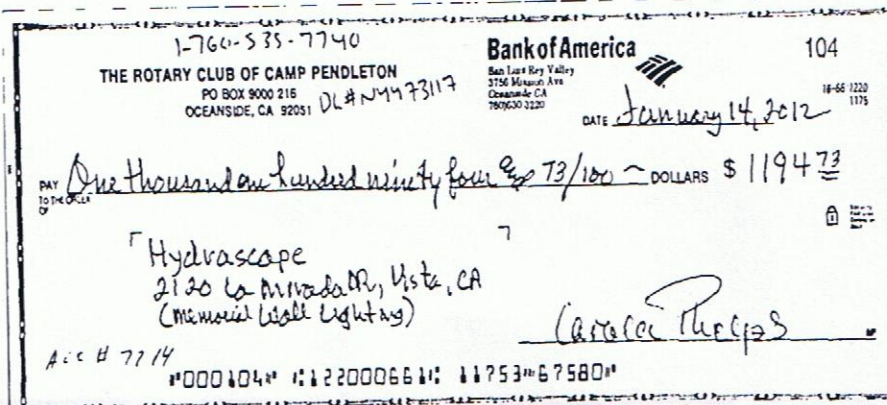 1-760-535-7740
THE ROTARY CLUB OF CAMP PENDLETON
PO BOX 9000 216
OCEANSIDE, CA 92051 DL# N4473117
Bank of America
San Luis Rey Valley
3756 Mission Ave
Oceanside CA
760/630 3220
104
16-66 1220
1175
DATE January 14, 2012
PAY One thousand one hundred ninety four and 73/100 ~ DOLLARS $ 1194 73
TO THE ORDER
OF
Hydrascape
2120 La Mirada DR, Vista, CA
(Memorial Wall Lighting)
Phelps
Acc # 7714
⑈000104⑈ ⑆122000661⑆ 11753⑉67580⑈